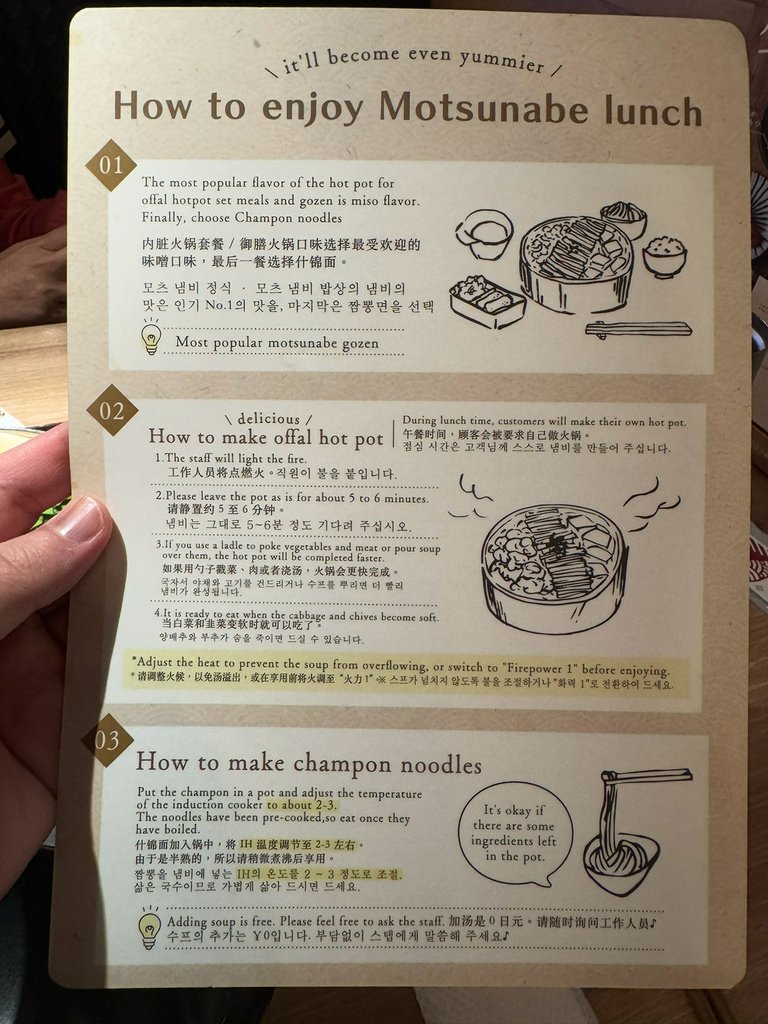 \ it'll become even yummier /
How to enjoy Motsunabe lunch
01
The most popular flavor of the hot pot for
offal hotpot set meals and gozen is miso flavor.
Finally, choose Champon noodles
内脏火锅套餐 / 御膳火锅口味选择最受欢迎的
味噌口味，最后一餐选择什锦面。
모츠 냄비 정식 · 모츠 냄비 밥상의 냄비의
맛은 인기 No.1의 맛을, 마지막은 짬뽕면을 선택
Most popular motsunabe gozen
02
\ delicious /
How to make offal hot pot
During lunch time, customers will make their own hot pot.
午餐时间，顾客会被要求自己做火锅。
점심 시간은 고객님께 스스로 냄비를 만들어 주십니다.
1.The staff will light the fire.
工作人员将点燃火。직원이 불을 붙입니다.
2.Please leave the pot as is for about 5 to 6 minutes.
请静置约 5 至 6 分钟。
냄비는 그대로 5~6분 정도 기다려 주십시오.
3.If you use a ladle to poke vegetables and meat or pour soup
over them, the hot pot will be completed faster.
如果用勺子戳菜、肉或者浇汤，火锅会更快完成。
국자서 야채와 고기를 건드리거나 수프를 뿌리면 더 빨리
냄비가 완성됩니다.
4.It is ready to eat when the cabbage and chives become soft.
当白菜和韭菜变软时就可以吃了。
양배추와 부추가 숨을 죽이면 드실 수 있습니다.
*Adjust the heat to prevent the soup from overflowing, or switch to "Firepower 1" before enjoying.
*请调整火候，以免汤溢出，或在享用前将火调至 "火力 1" ※ 스프가 넘치지 않도록 불을 조절하거나 "화력 1"로 전환하여 드세요.
03
How to make champon noodles
Put the champon in a pot and adjust the temperature
of the induction cooker to about 2-3.
The noodles have been pre-cooked,so eat once they
have boiled.
什锦面加入锅中，将 IH 温度调节至 2-3 左右。
由于是半熟的，所以请稍微煮沸后享用。
짬뽕을 냄비에 넣는 IH의 온도를 2 ~ 3 정도로 조절.
삶은 국수이므로 가볍게 삶아 드시면 드세요.
It's okay if
there are some
ingredients left
in the pot.
Adding soup is free. Please feel free to ask the staff. 加汤是 0 日元。请随时询问工作人员♪
수프의 추가는 ¥0입니다. 부담없이 스탭에게 말씀해 주세요♪